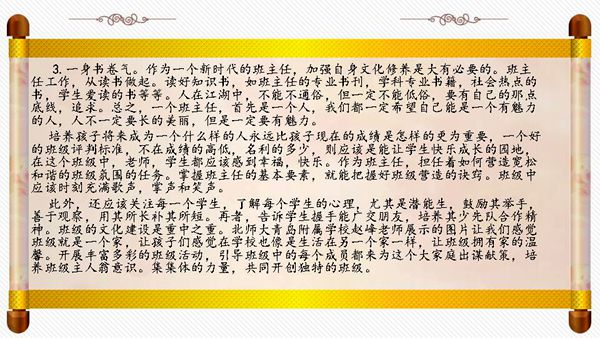 3.一身书卷气。作为一个新时代的班主任，加强自身文化修养是大有必要的。班主
任工作，从读书做起。读好知识书，如班主任的专业书刊，学科专业书籍，社会热点的
书，学生爱读的书等等。人在江湖中，不能不通俗，但一定不能低俗，要有自己的那点
底线，追求。总之，一个班主任，首先是一个人，我们都一定希望自己能是一个有魅力
的人，人不一定要长的美丽，但是一定要有魅力。
培养孩子将来成为一个什么样的人永远比孩子现在的成绩是怎样的更为重要，一个好
的班级评判标准，不在成绩的高低，名利的多少，则应该是能让学生快乐成长的园地，
在这个班级中，老师，学生都应该感到幸福，快乐。作为班主任，担任着如何营造宽松
和谐的班级氛围的任务。掌握班主任的基本要素，就能把握好班级营造的诀窍。班级中
应该时刻充满歌声，掌声和笑声。
此外，还应该关注每一个学生，了解每个学生的心理，尤其是潜能生，鼓励其举手，
善于观察，用其所长补其所短。再者，告诉学生握手能广交朋友，培养其少先队合作精
神。班级的文化建设是重中之重。北师大青岛附属学校赵峰老师展示的图片让我们感觉
班级就是一个家，让孩子们感觉在学校也像是生活在另一个家一样，让班级拥有家的温
馨。开展丰富多彩的班级活动，引导班级中的每个成员都来为这个大家庭出谋献策，培
养班级主人翁意识。集集体的力量，共同开创独特的班级。